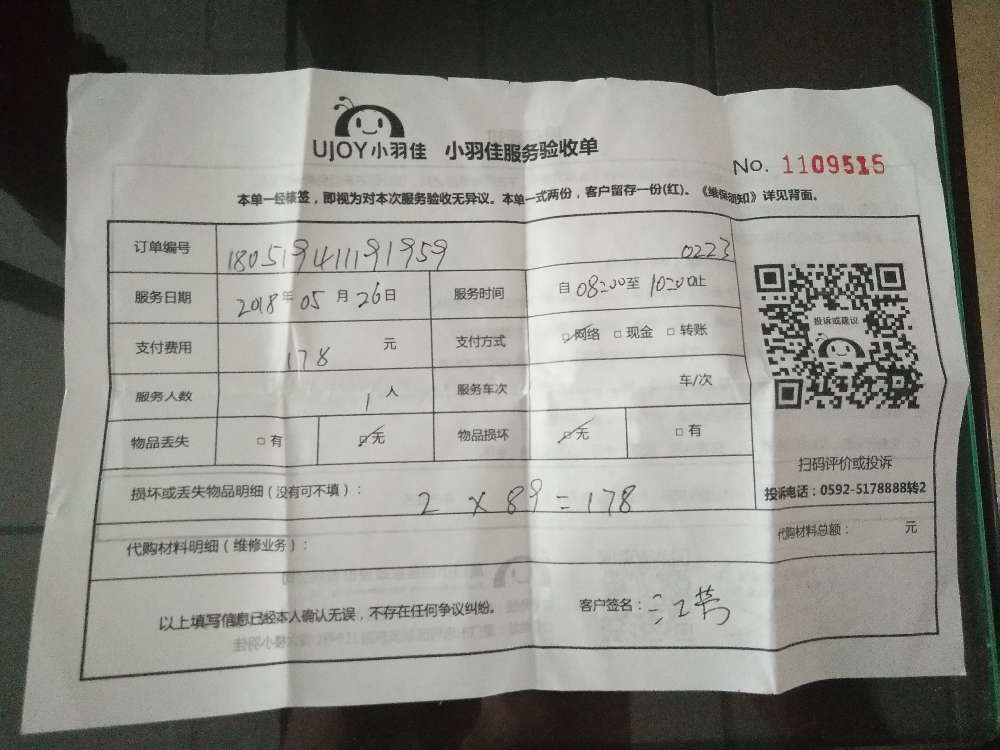 UJOY小羽佳 小羽佳服务验收单
No. 1109515
本单一经核签，即视为对本次服务验收无异议。本单一式两份，客户留存一份(红)。《维保须知》详见背面。
订单编号 180519411191959 0223
服务日期 2018年05月26日 服务时间 自08:00至10:00止
支付费用 178 元 支付方式 □网络 □现金 □转账
服务人数 1人 服务车次 车/次
物品丢失 □有 □无 物品损坏 □无 □有
投诉或建议
扫码评价或投诉
投诉电话：0592-5178888转2
损坏或丢失物品明细（没有可不填）： 2×89=178
代购材料明细（维修业务）： 代购材料总额： 元
以上填写信息已经本人确认无误，不存在任何争议纠纷。 客户签名：